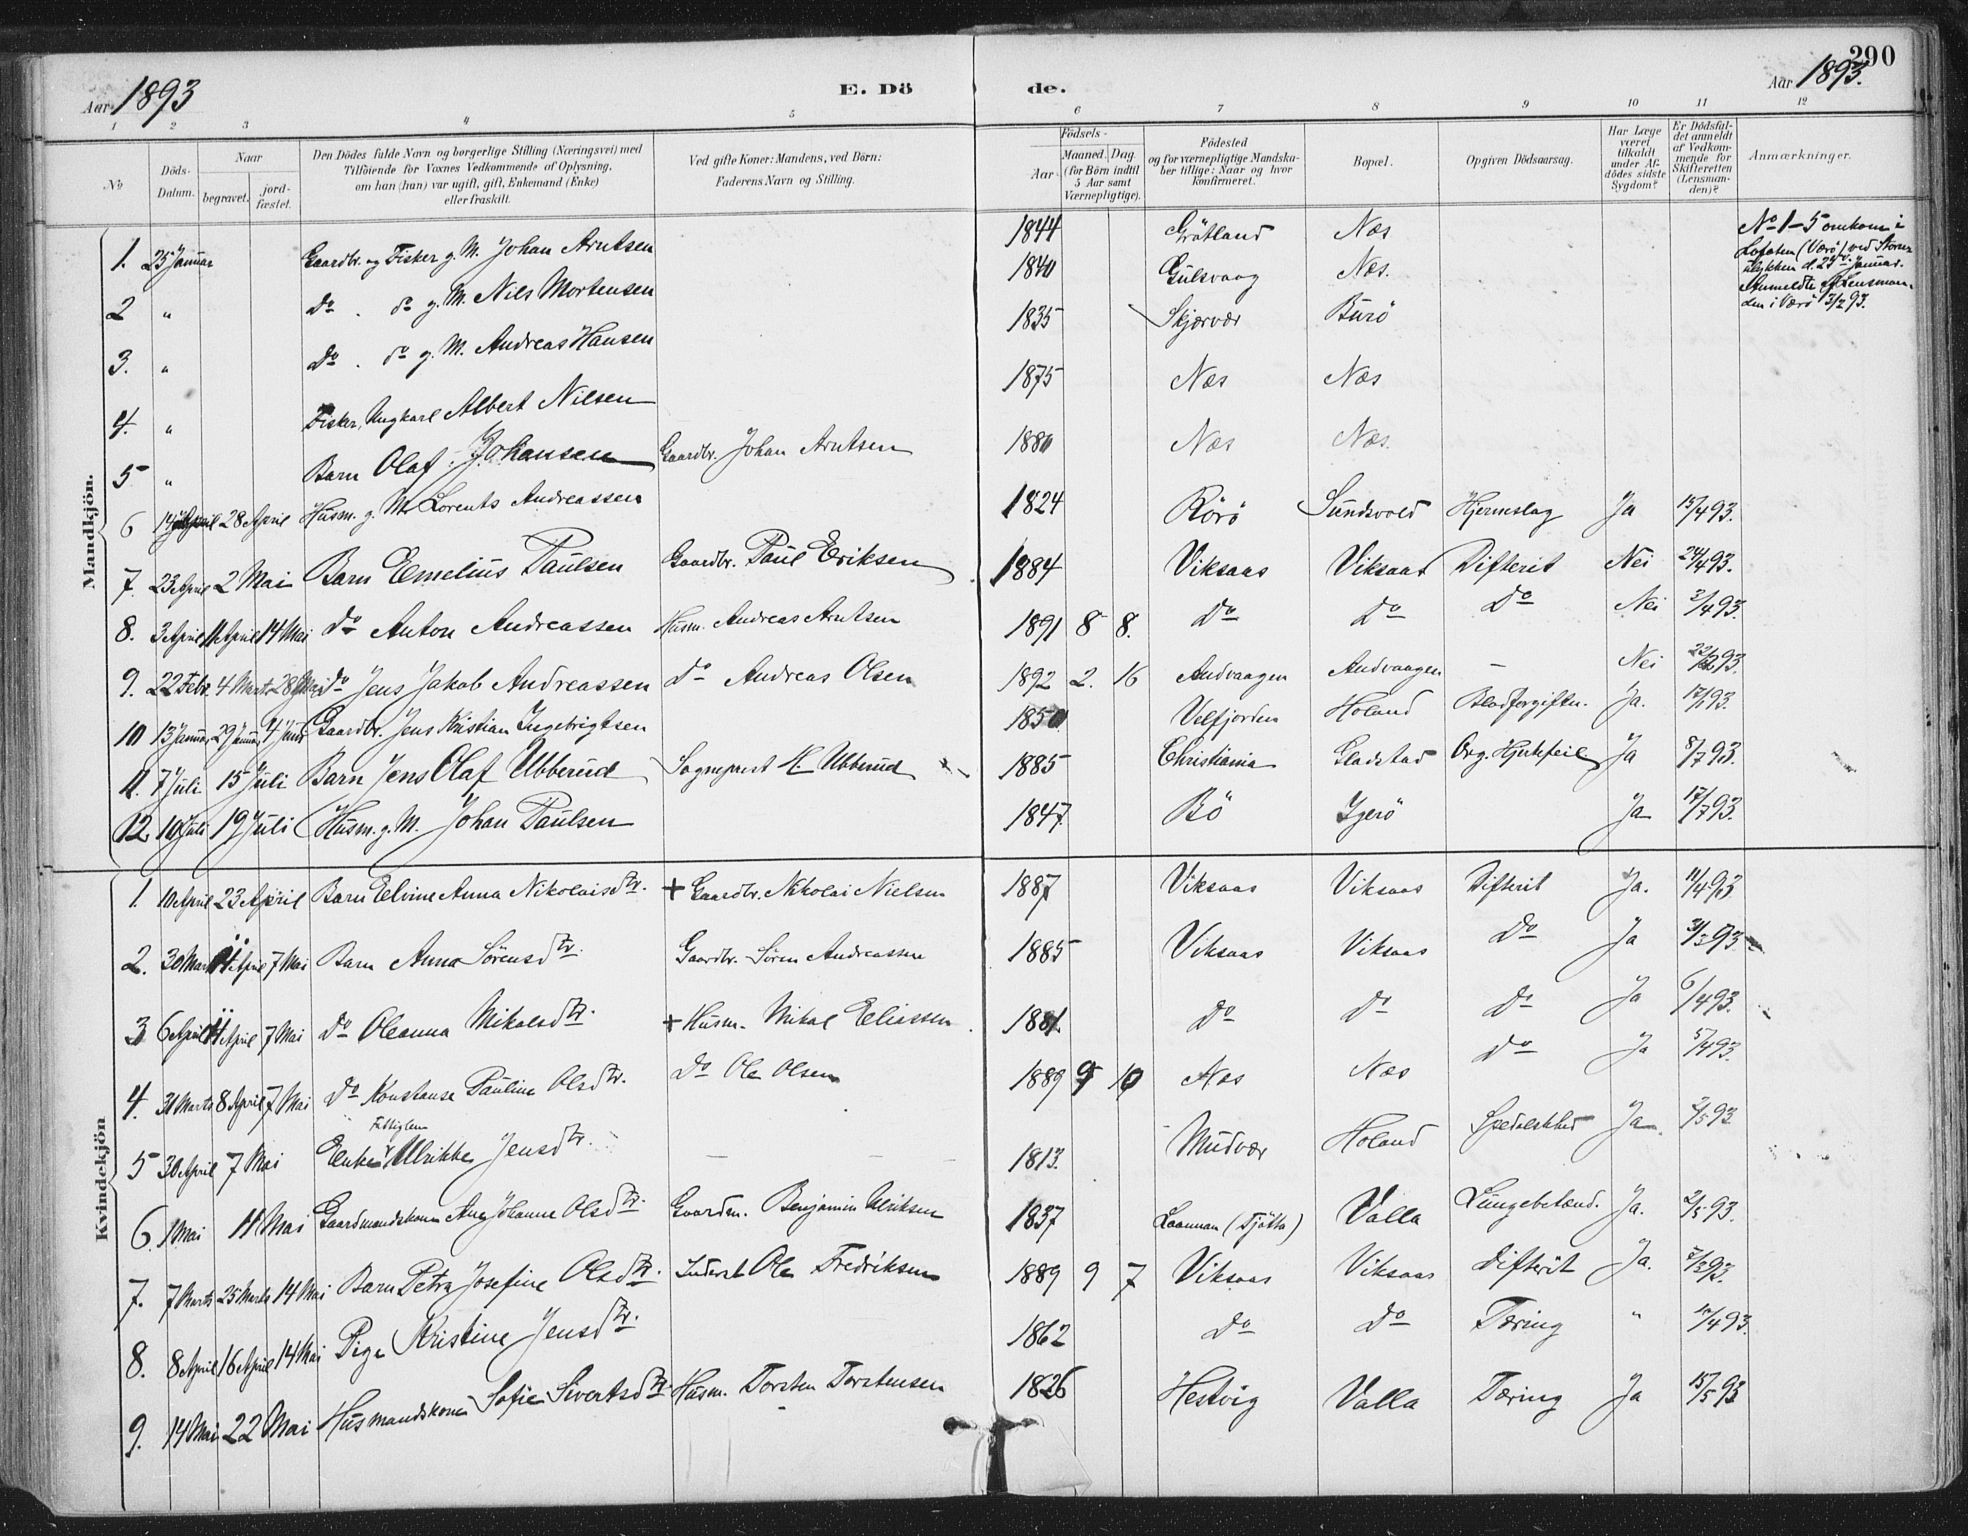 290
Aar 1893
E. Dö
de.
Aar 1893.
1 2 3 4 5 6 7 8 9 10 11 12
No
Döds-Datum.
Naar
begravet.
jord-fæstet.
Den Dödes fulde Navn og borgerlige Stilling (Næringsvei) med
Tilföiende for Voxnes Vedkommende af Oplysning,
om han (hun) var ugift, gift, Enkemand (Enke)
eller fraskilt.
Ved gifte Koner: Mandens, ved Börn:
Faderens Navn og Stilling.
Födsels-
Aar
Maaned. Dag
(for Börn indtil
5 Aar samt
Værnepligtige).
Födested
og for værnepligtige Mandska-
ber tillige: Naar og hvor
konfirmeret.
Bopæl.
Opgiven Dödsaarsag.
Har Læge
været
tilkaldt
under Af-
dödes sidste
Sygdom?
Er Dödsfal-
det anmeldt
af Vedkom-
mende for
Skifteretten
(Lensman-
den)?
Anmærkninger.
Mandkjön.
1. 25 Januar Gaardbr. og Fisker g. M. Johan Arntsen 1844 Grötland Næs
No 1-5 omkom i
Lofoten (Værö) ved Storm-
ulykken d. 25de Januar.
Anmeldte f. Lensman-
den i Værö 3/2 93.
2 " Do . do g. M. Nils Mortensen 1840 Gulsvaag Næs.
3. " Do . do g. M. Andreas Hansen 1835 Skjærvær Burö
4. " Fisker, Ungkarl Albert Nilsen 1875 Næs Næs
5 " Barn Olaf Johansen Gaardbr. Johan Arntsen 1880 Næs Næs
6 14 April 28 April Husm. g. M. Lorents Andreassen 1824 Rörö Sundsvold Hjerneslag Ja 15/4 93.
7. 23 April 2 Mai Barn Emelius Paulsen Gaardbr. Paul Eriksen 1884 Viksaas Viksaas Difterit Nei 24/4 93.
8. 3 April 11 April 14 Mai do Anton Andreassen Husm. Andreas Arntsen 1891 8 8. Do Do Do Nei 3/4 93.
9. 22 Febr. 4 Marts 28 Mai do Jens Jakob Andreassen do Andreas Olsen 1892 2. 16 Andvaagen Andvaagen – Nei 22/2 93.
10 13 Januar 29 Januar 4 Juni Gaardbr. Jens Kristian Ingebrigtsen 1850 Velfjorden Holand Blodforgiftn. Ja. 17/1 93.
11. 7 Juli 15 Juli Barn Jens Olaf Ubberud Sogneprest K Ubberud 1885 Christiania Gladstad Org. Hjertefeil Ja 8/7 93.
12. 10 Juli 19 Juli Husm. g. M. Johan Paulsen 1847. Bö Ja 17/7 93.
Kvindekjön
1. 10 April 23 April Barn Elvine Anna Nikolaisdtr. + Gaardbr. Nikolai Nielsen 1887 Viksaas Viksaas Difterit Ja. 11/4 93
2. 30 Marts 11 April 7 Mai Barn Anna Sörensdtr. Gaardbr. Sören Andreassen 1885 Viksaas Viksaas Do Ja 31/3 93
3 6 April 11 April 7 Mai Do Oleanna Mikalsdtr. + Husm. Mikal Eliassen 1881. Do Do Do Ja 6/4 93.
4. 31 Marts 8 April 7 Mai Do Konstanse Pauline Olsdtr. Do Ole Olsen 1889 9 10 Næs Næs Do Ja 5/4 93.
5 30 April 7 Mai Enke Fattiglem Ulrikke Jensdtr. – – – 1813. Mudvær Holand Spedalskhed Ja 2/5 93
6. 1 Mai 11 Mai Gaardmandskone Ane Johanne Olsdtr. Gaardm. Benjamin Ulriksen 1837 (Tjötta) Valla Lungebetænd. Ja. 2/5 93.
7. 7 Marts 25 Marts 14 Mai Barn Petra Josefine Olsdtr. Inderst Ole Fredriksen 1889 9 7 Viksaas Viksaas Difterit Ja. 7/3 93.
8. 8 April 16 April 14 Mai Pige Kristine Jensdtr. 1862 Do Do Tæring " /4 93.
9. 14 Mai 22 Mai Husmandskone Sofie Sivertsdtr. Husm. Torsten Torstensen 1826 Hestvig Valla Tæring Ja 15/5 93